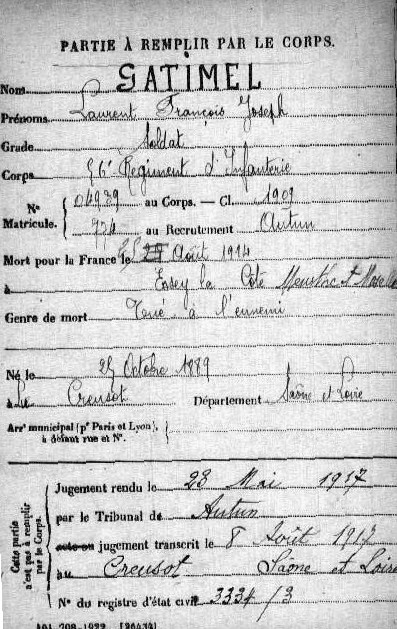 PARTIE À REMPLIR PAR LE CORPS.
Nom GATIMEL
Prénoms Laurent François Joseph
Grade Soldat
Corps 56e Régiment d'Infanterie
N° Matricule. { 04939 au Corps. — Cl. 1909
774 au Recrutement Autun
Mort pour la France le 25 Août 1914
à Essey la Côte Meurthe et Moselle
Genre de mort Tué à l'ennemi
Né le 25 Octobre 1889
à Le Creusot Département Saône et Loire
Arr^t municipal (p^r Paris et Lyon), à défaut rue et N°. {
Cette partie n'est pas à remplir par le Corps.
Jugement rendu le 23 Mai 1917
par le Tribunal de Autun
acte ou jugement transcrit le 8 Août 1917
au Creusot Saône et Loire
N° du registre d'état civil 3334/3
708-1922 [26434]